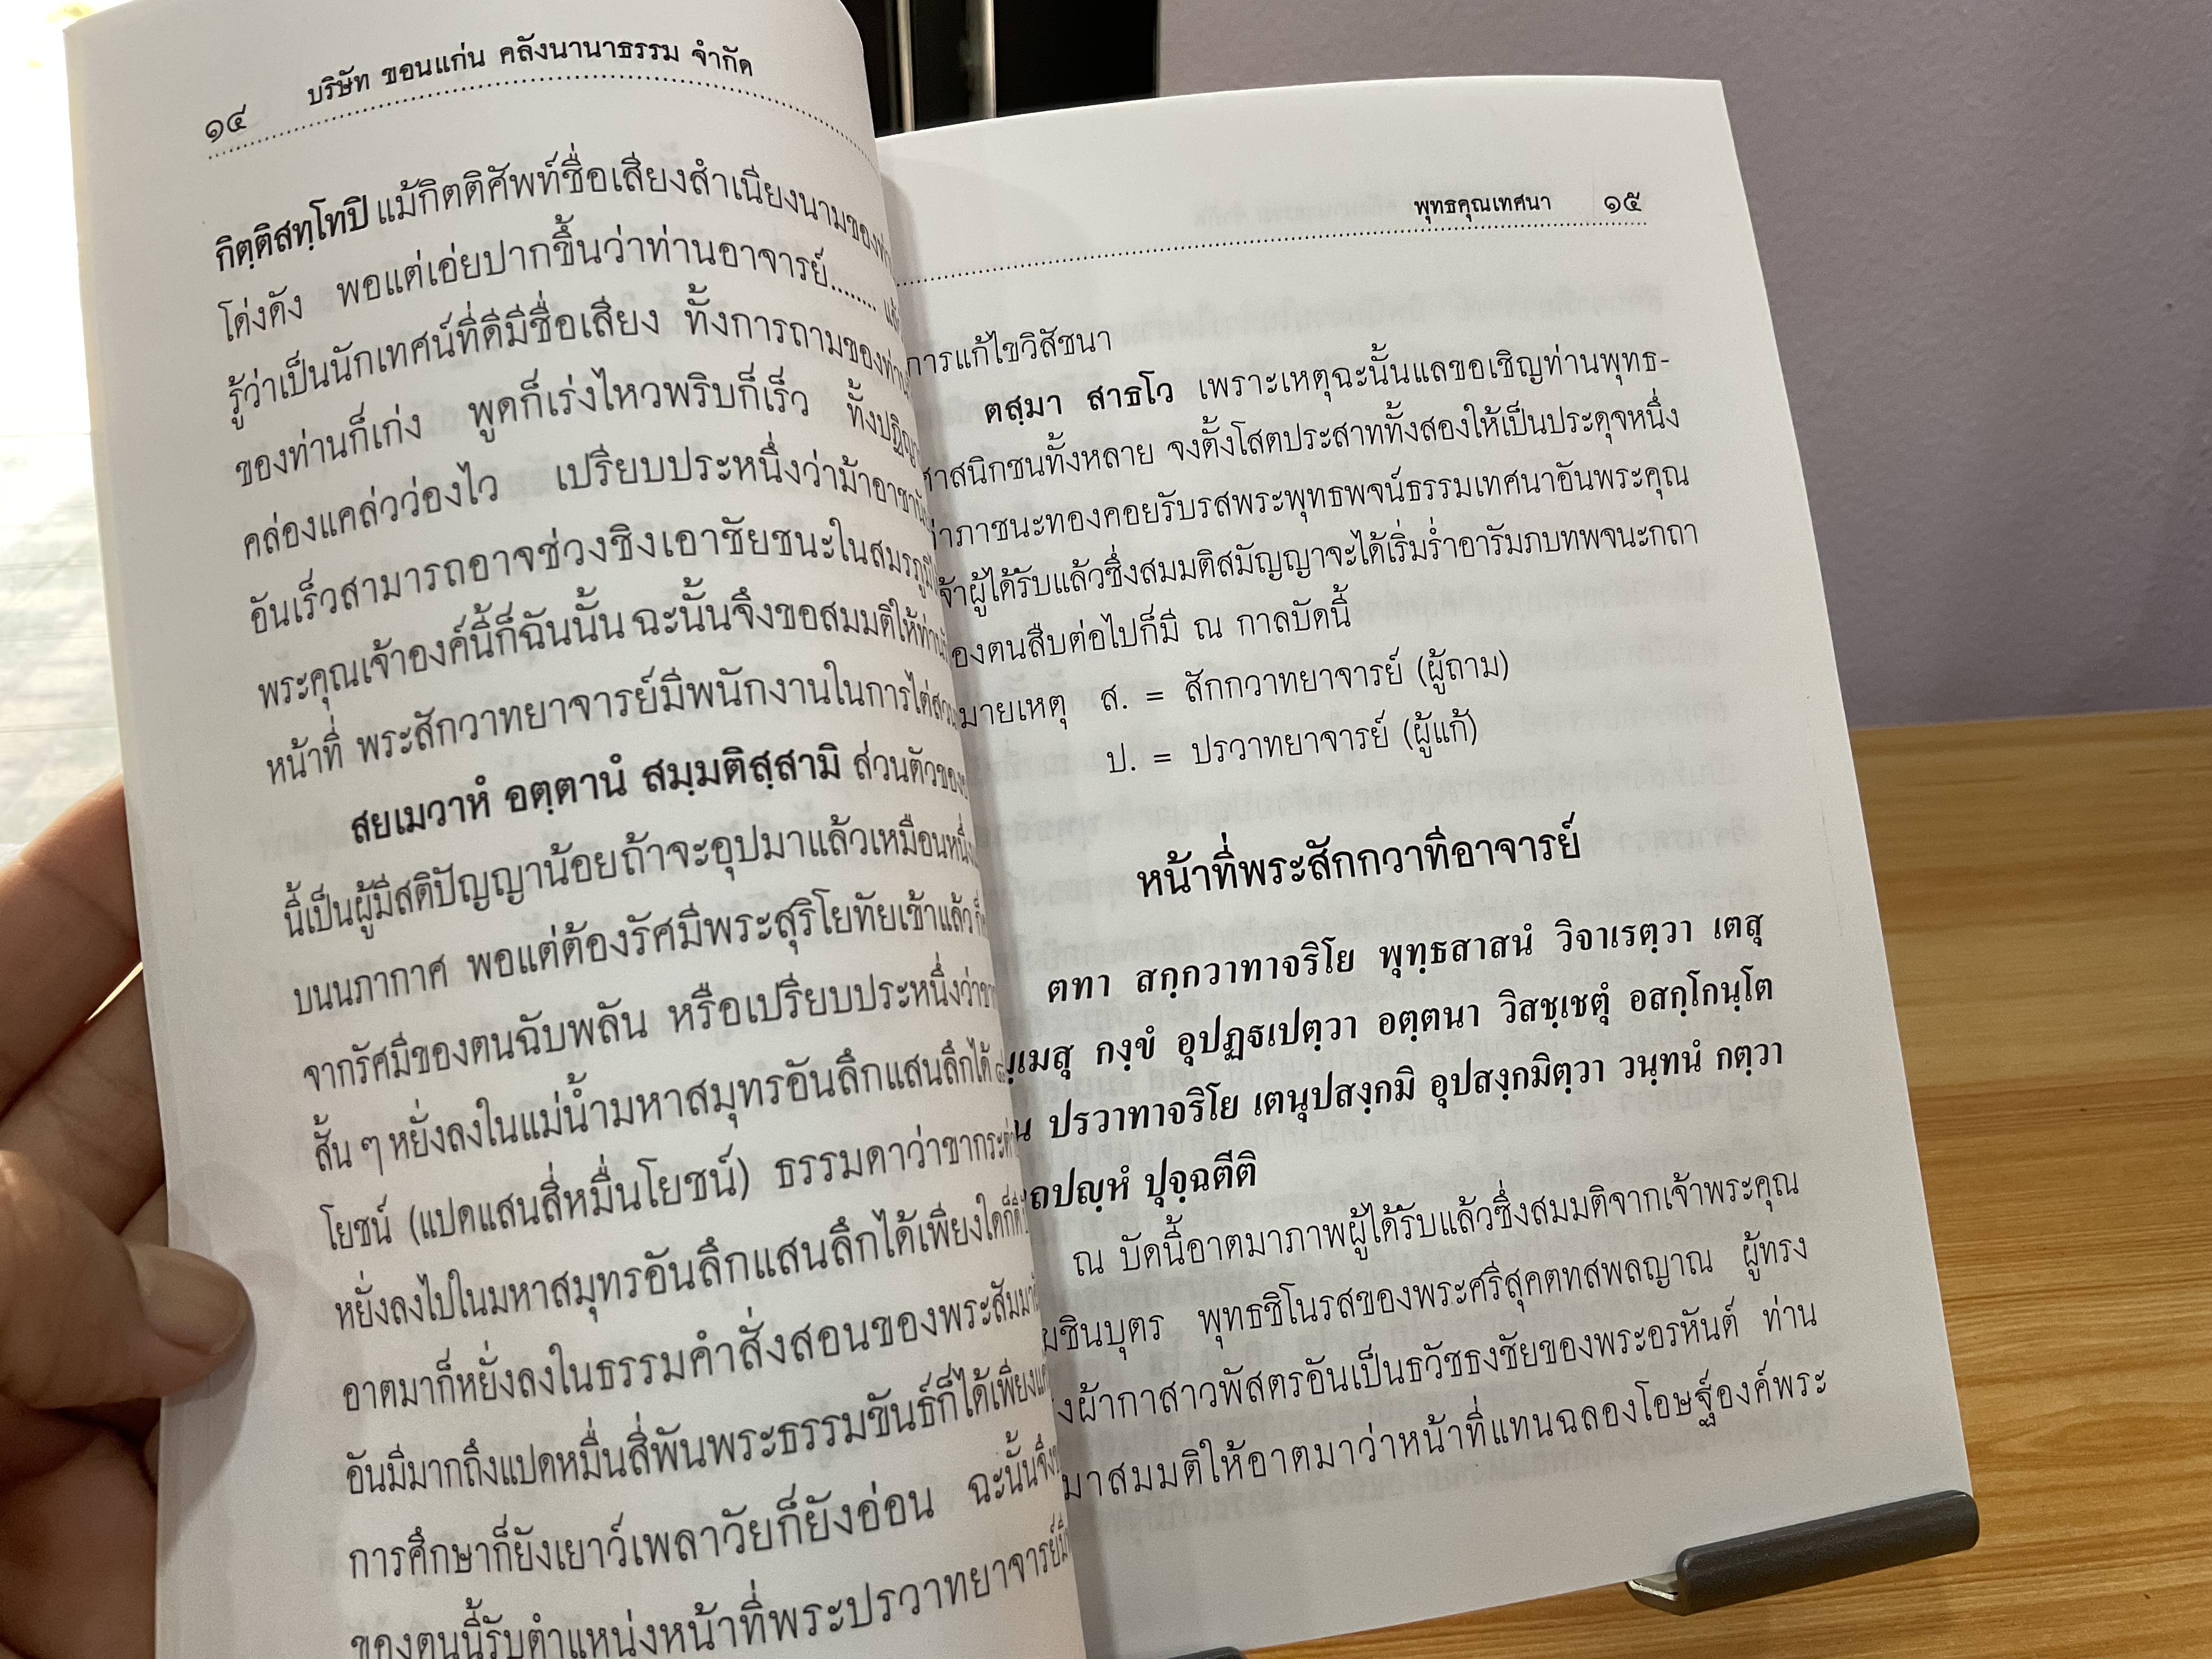 ๑๔ บริษัท ขอนแก่น คลังนานาธรรม จำกัด
กิตฺติสทฺโทปิ แม้กิตติศัพท์ชื่อเสียงสำเนียงนามของท่าน
โด่งดัง พอแต่เอ่ยปากขึ้นว่าท่านอาจารย์........
รู้ว่าเป็นนักเทศน์ที่ดีมีชื่อเสียง ทั้งการถามของท่าน
ของท่านก็เก่ง พูดก็เร่งไหวพริบก็เร็ว
คล่องแคล่วว่องไว เปรียบประหนึ่งว่าม้า
อันเร็วสามารถอาจช่วงชิงเอาชัยชนะใน
พระคุณเจ้าองค์นี้ก็ฉันนั้น ฉะนั้นจึงขอสมมติให้
หน้าที่ พระสักวาทยาจารย์มีพนักงานในการ
สยเมวาหํ อตฺตานํ สมฺมติสฺสามิ ส่วนตัว
นี้เป็นผู้มีสติปัญญาน้อยถ้าจะอุปมาแล้วเหมือน
บนนภากาศ พอแต่ต้องรัศมีพระสุริโยทัยเข้าแล้ว
จากรัศมีของตนฉับพลัน หรือเปรียบประหนึ่งว่า
สั้น ๆ หยั่งลงในแม่น้ำมหาสมุทรอันลึกแสนลึกได้
โยชน์ (แปดแสนสี่หมื่นโยชน์) ธรรมดาว่า
หยั่งลงไปในมหาสมุทรอันลึกแสนลึกได้เพียงใดก็ดี
อาตมาก็หยั่งลงในธรรมคำสั่งสอนของ
อันมีมากถึงแปดหมื่นสี่พันพระธรรมขันธ์ก็ได้
การศึกษาก็ยังเยาว์เพลาวัยก็ยังอ่อน ฉะนั้นจึง
ของตนนี้รับตำแหน่งหน้าที่พระปรวาทยาจารย์
พุทธคุณเทศนา ๑๕
การแก้ไขวิสัชนา
ตสฺมา สาธโว เพราะเหตุฉะนั้นแลขอเชิญท่านพุทธ-
ศาสนิกชนทั้งหลาย จงตั้งโสตประสาททั้งสองให้เป็นประดุจหนึ่ง
ว่าภาชนะทองคอยรับรสพระพุทธพจน์ธรรมเทศนาอันพระคุณ
เจ้าผู้ได้รับแล้วซึ่งสมมติสมัญญาจะได้เริ่มร่ำอารัมภบทพจนะกถา
ของตนสืบต่อไปก็มี ณ กาลบัดนี้
หมายเหตุ ส. = สักกวาทยาจารย์ (ผู้ถาม)
ป. = ปรวาทยาจารย์ (ผู้แก้)
หน้าที่พระสักกวาทีอาจารย์
ตทา สกฺกวาทาจริโย พุทฺธสาสนํ วิจาเรตฺวา เตสุ
กงฺขํ อุปฏฺฐเปตฺวา อตฺตนา วิสชฺเชตุํ อสกฺโกนฺโต
ปรวาทาจริโย เตนุปสงฺกมิ อุปสงฺกมิตฺวา วนฺทนํ กตฺวา
ปุจฺฉตีติ
ณ บัดนี้อาตมาภาพผู้ได้รับแล้วซึ่งสมมติจากเจ้าพระคุณ
พุทธชิโนรสของพระศรีสุคตทสพลญาณ ผู้ทรง
ผ้ากาสาวพัสตรอันเป็นธวัชธงชัยของพระอรหันต์ ท่าน
มาสมมติให้อาตมาว่าหน้าที่แทนฉลองโอษฐ์องค์พระ